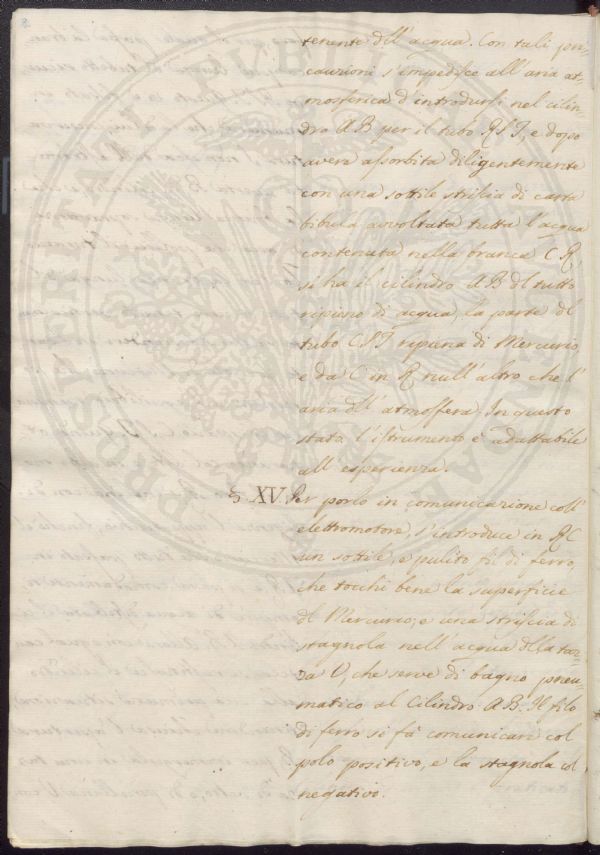 8
tenente dll' acqua. Con tali pre-
cauzioni s'impedisce all' aria at-
mosferica d'introdursi nel cilin-
dro AB per il tubo RST, e dopo
avere assorbita diligentemente
con una sottile striscia di carta
bibula avvoltata tutta l'acqua
contenuta nella branca CR,
si ha il cilindro AB dl tutto
ripieno di acqua, la parte dl
tubo CST ripiena di Mercurio
e da C in R null' altro che l'
aria dll' atmosfera. In questo
stato l'istrumento è adattabile
all' esperienza.
§ XV. Per porlo in comunicazione coll'
elettromotore, s'introduce in RC
un sottile, e pulito fil di ferro,
che tocchi bene la superficie
dl Mercurio; e una striscia di
stagnola nell' acqua dlla taz-
za V, che serve di bagno pneu-
matico al Cilindro AB. Il filo
di ferro si fà comunicare col
polo positivo, e la stagnola col
negativo.
PROSPERITATI PUBLICAE AUGENDAE